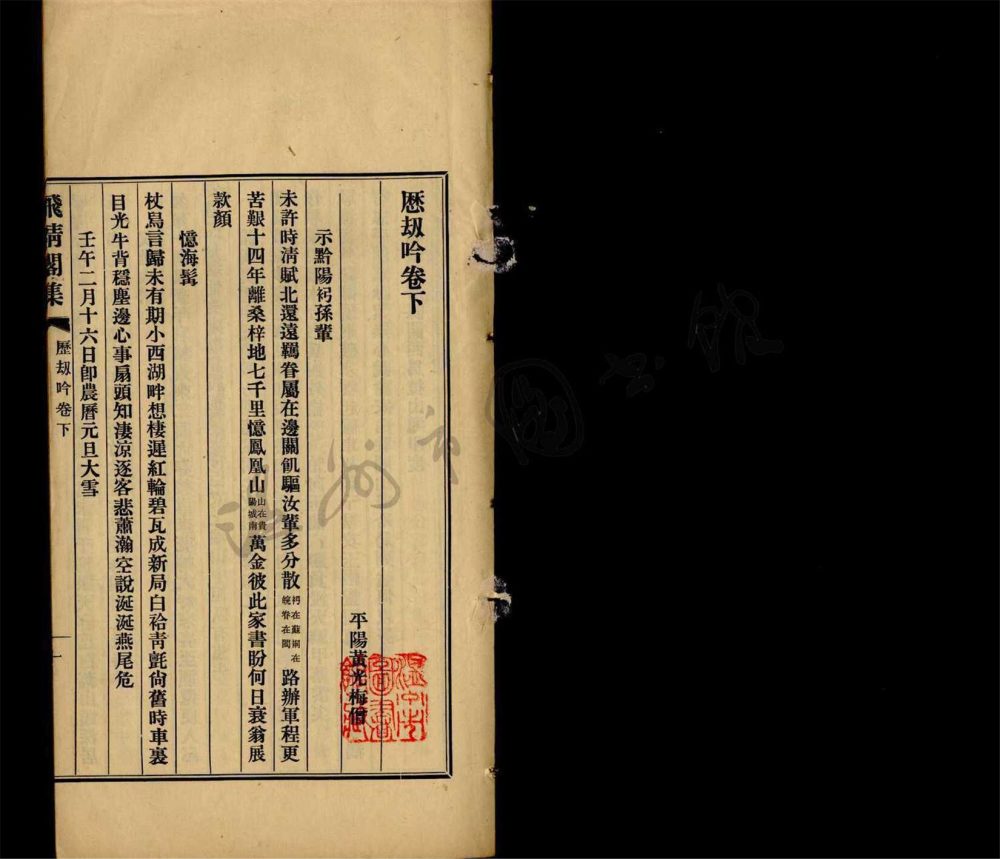 歷刼吟卷下
平陽黃光梅僧
示黔陽礽孫輩
未許時清賦北還遠羈眷屬在邊關飢驅汝輩多分散礽在蘇嗣在皖眷在閩路辦軍程更
苦艱十四年離桑梓地七千里憶鳳凰山山在貴陽城南萬金彼此家書盼何日衰翁展
款顏
憶海髯
杖舄言歸未有期小西湖畔想棲遲紅輪碧瓦成新局白袷靑氈尙舊時車裏
目光牛背穩塵邊心事扇頭知淒涼逐客悲蕭瀚空說涎涎燕尾危
壬午二月十六日卽農曆元旦大雪
飛情閣集
歷刼吟卷下
一
溫州市圖書館藏
溫州市圖書館